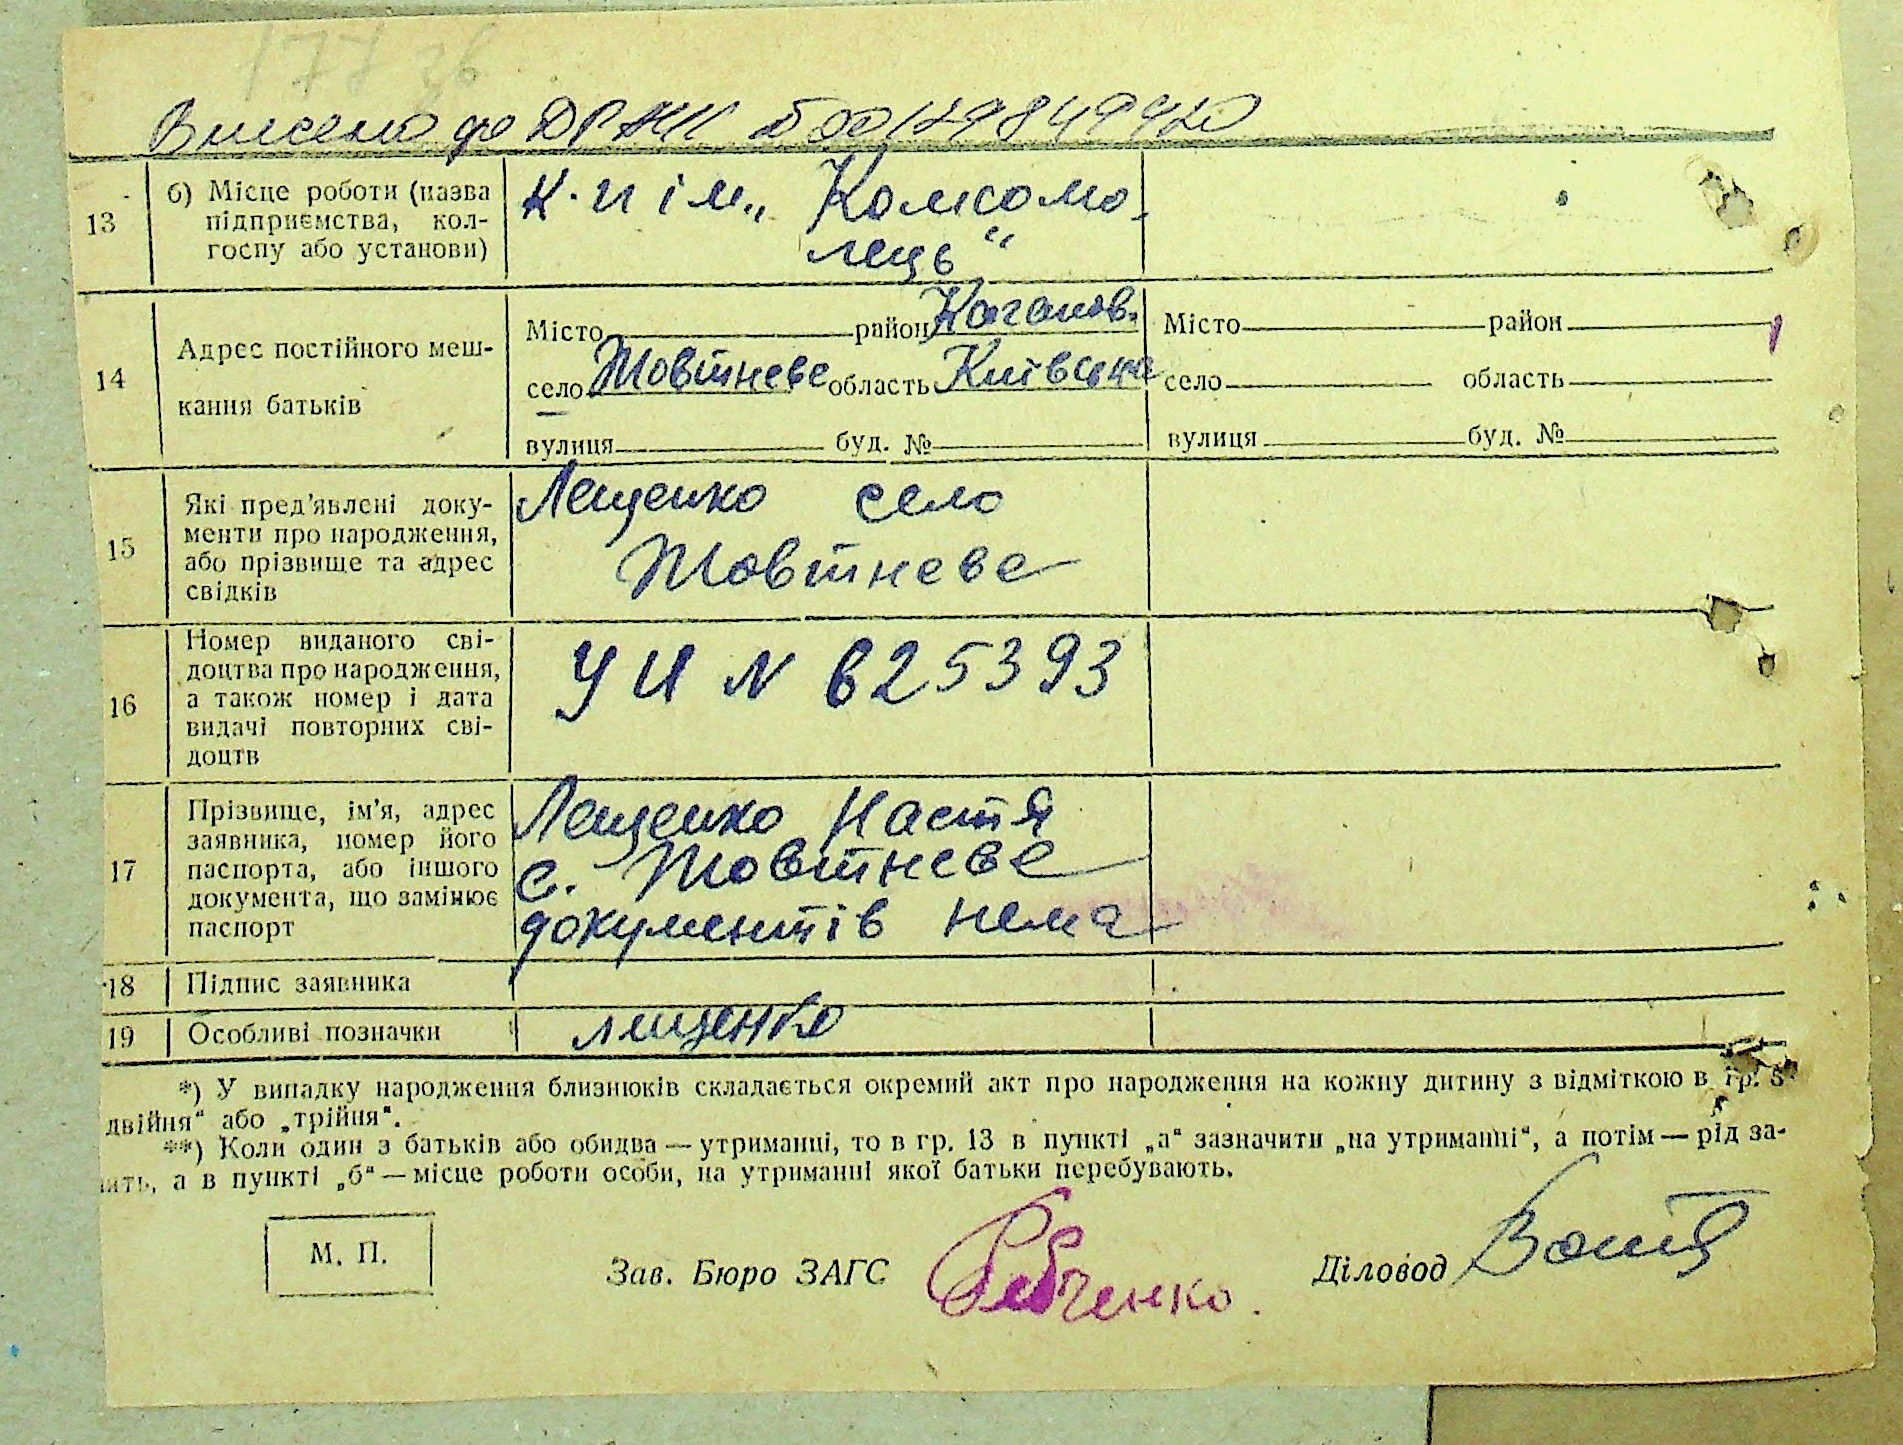 Внесено до ДРАЦС 00129849420
13 б) Місце роботи (назва підприємства, колгоспу або установи)
к-п ім. „Комсомо-
лець“
14 Адрес постійного меш-
кання батьків
Місто район Каганов. Місто район
село Жовтневе область Київська село область
вулиця буд. № вулиця буд. №
15 Які пред'явлені доку-
менти про народження,
або прізвище та адрес
свідків
Лещенко село
Жовтневе
16 Номер виданого сві-
доцтва про народження,
а також номер і дата
видачі повторних сві-
доцтв
УИ N 625393
17 Прізвище, ім'я, адрес
заявника, номер його
паспорта, або іншого
документа, що замінює
паспорт
Лещенко Настя
с. Жовтневе
документів нема
18 Підпис заявника
19 Особливі позначки
лищенко
*) У випадку народження близнюків складається окремий акт про народження на кожну дитину з відміткою в гр. 5
двійня“ або „трійня“.
**) Коли один з батьків або обидва — утриманці, то в гр. 13 в пункті „а“ зазначити „на утриманні“, а потім — рід за-
нять, а в пункті „б“ — місце роботи особи, на утриманні якої батьки перебувають.
М. П.
Зав. Бюро ЗАГС Діловод